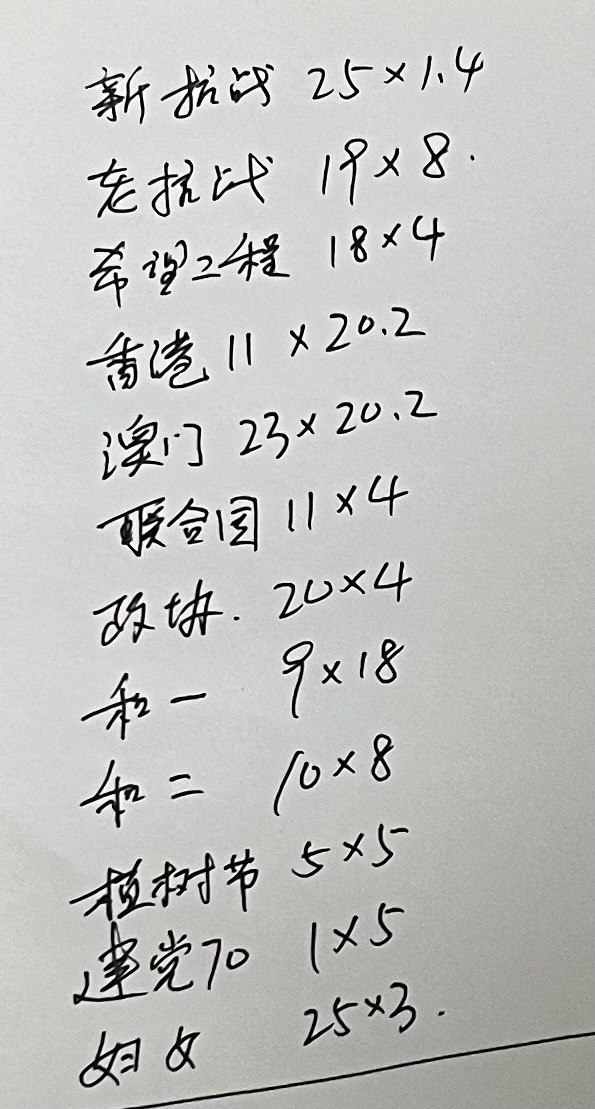 新抗战 25×1.4
老抗战 19×8.
希望工程 18×4
香港 11×20.2
澳门 23×20.2
联合国 11×4
政协. 20×4
和一 9×18
和二 10×8
植树节 5×5
建党70 1×5
妇女 25×3.